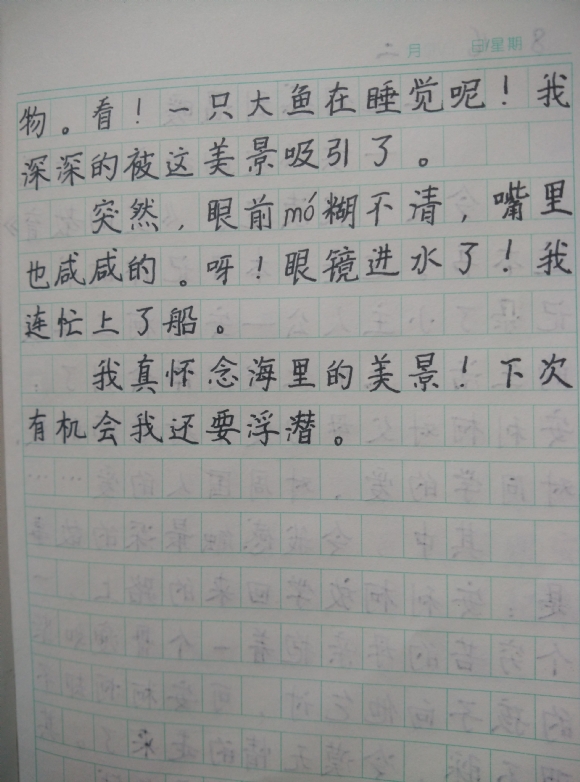 月 日/星期
物。看！一只大鱼在睡觉呢！我
深深的被这美景吸引了。
突然，眼前mó糊不清，嘴里
也咸咸的。呀！眼镜进水了！我
连忙上了船。
我真怀念海里的美景！下次
有机会我还要浮潜。